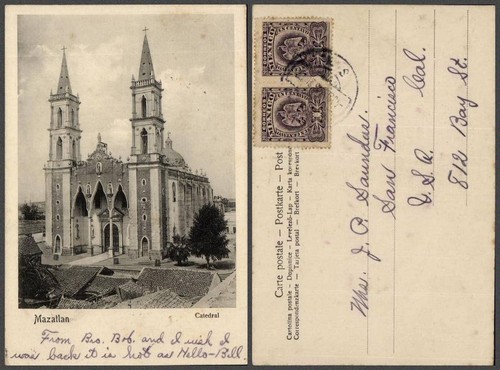 Mazatlan
Catedral
From Bro. Bob. and I wish I
was back it is hot as Hello-Bill.
CORREOS
MEXICO
Carte postale — Postkarte — Post
Cartolina postale — Dopisnice — Levelező-Lap — Karta
Correspondenzkarte — Tarjeta postal — Brefkort — Brev-kort
Mrs. J. P. Saunders.
San Francisco
U.S.A. Cal.
812 Bay St.